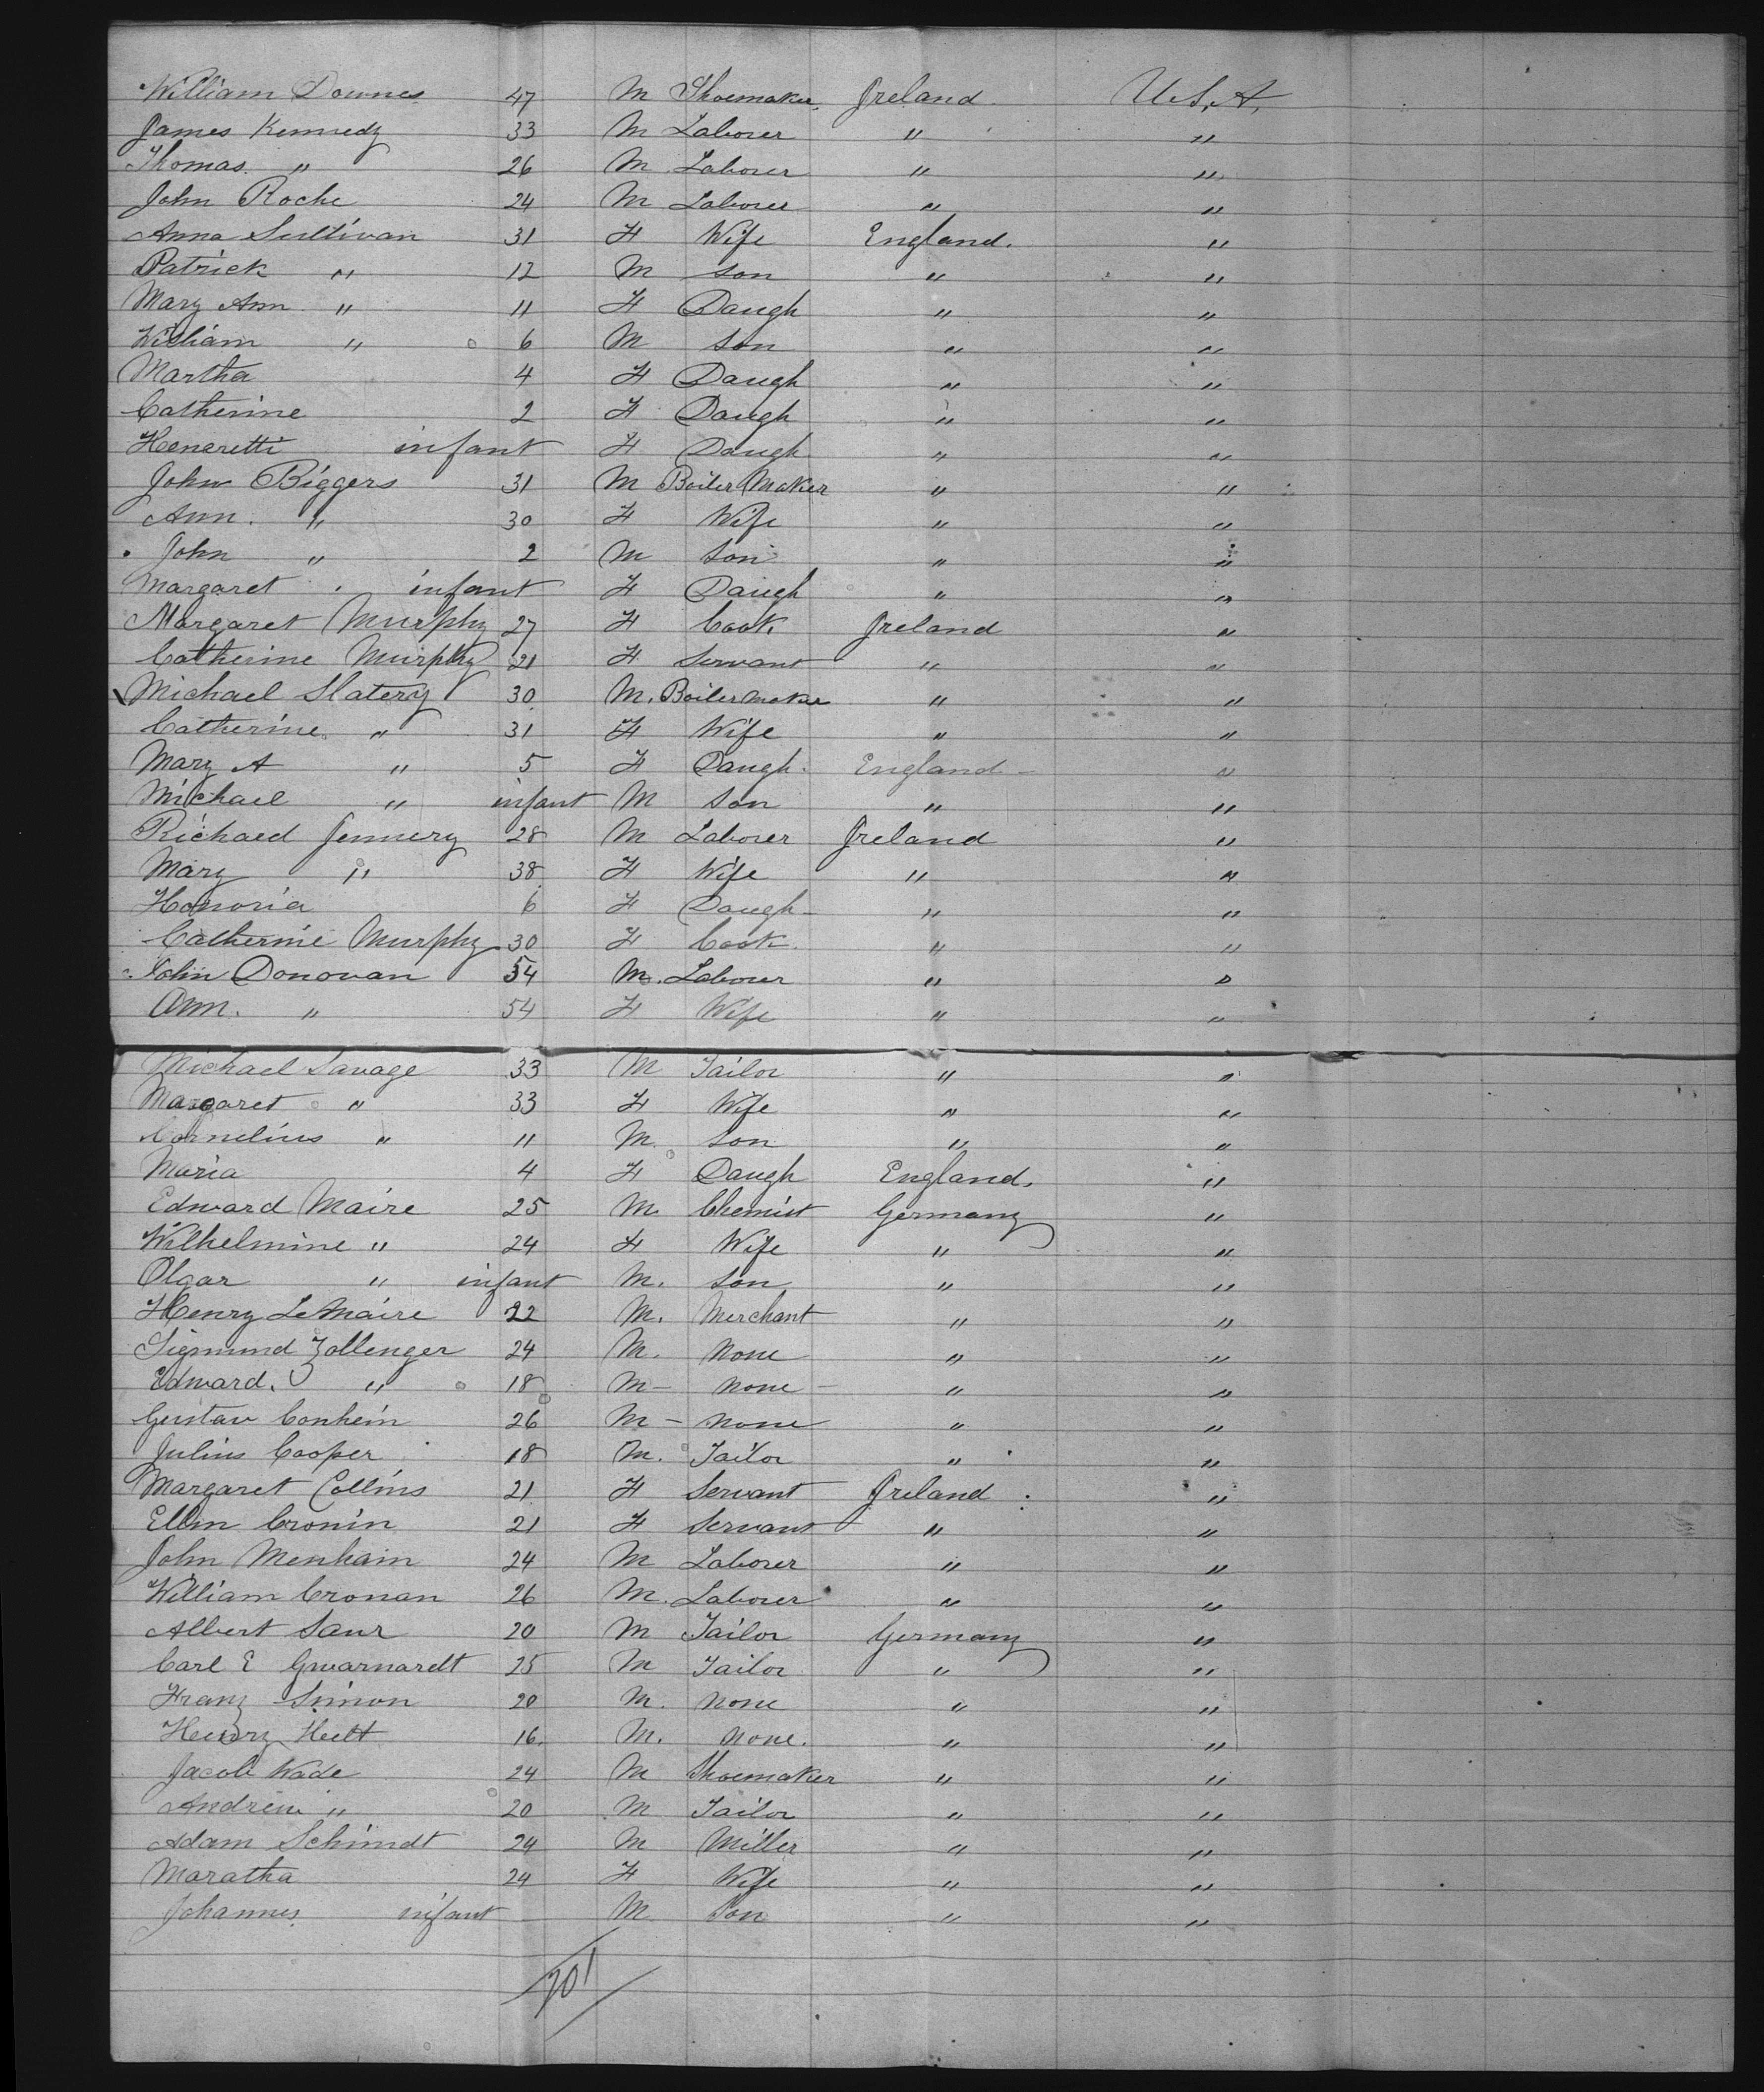 William Downes 47 M Shoemaker Ireland U.S.A.
James Kennedy 33 M Laborer " "
Thomas " 26 M Laborer " "
John Roche 24 M Laborer " "
Anna Sullivan 31 F Wife England. "
Patrick " 12 M son " "
Mary Ann " 11 F Daugh " "
William " 6 M son " "
Martha 4 F Daugh " "
Catherine 2 F Daugh " "
Heneretti infant F Daugh " "
John Biggers 31 M Boiler Maker " "
Ann. " 30 F Wife " "
John " 2 M son " "
Margaret infant F Daugh " "
Margaret Murphy 27 F Cook Ireland "
Catherine Murphy 21 F Servant " "
Michael Slatery 30 M. Boiler maker " "
Catherine " 31 F Wife " "
Mary A " 5 F Daugh. England "
Michael " infant M son " "
Richard Jennery 28 M Laborer Ireland "
Mary " 38 F Wife " "
Honoria 6 F Daugh " "
Catherine Murphy 30 F Cook " "
John Donovan 54 M. Laborer " "
Ann. " 54 F Wife " "
Michael Savage 33 M Tailor " "
Margaret " 33 F Wife " "
Cornelius " 11 M son " "
Maria 4 F Daugh England. "
Edward Maire 25 M Chemist Germany "
Wilhelmine " 24 F Wife " "
Olgar " infant M. son " "
Henry LeMaire 22 M. Merchant " "
Sigmund Zollenger 24 M. None " "
Edward. " 18 M - none - " "
Gustav Conhein 26 M - none " "
Julius Cooper 18 M. Tailor " "
Margaret Collins 21 F Servant Ireland "
Ellen Cronin 21 F Servant " "
John Menhain 24 M Laborer " "
William Cronan 26 M. Laborer " "
Albert Saur 20 M Tailor Germany "
Carl E Gwarnardt 25 M Tailor " "
Franz Simon 20 M. none " "
Henry Heilt 16. M. none. " "
Jacob Wade 24 M Shoemaker " "
Andrew " 20 M Tailor " "
Adam Schimdt 24 M Miller " "
Maratha 24 F Wife " "
Johannes infant M Son " "
701